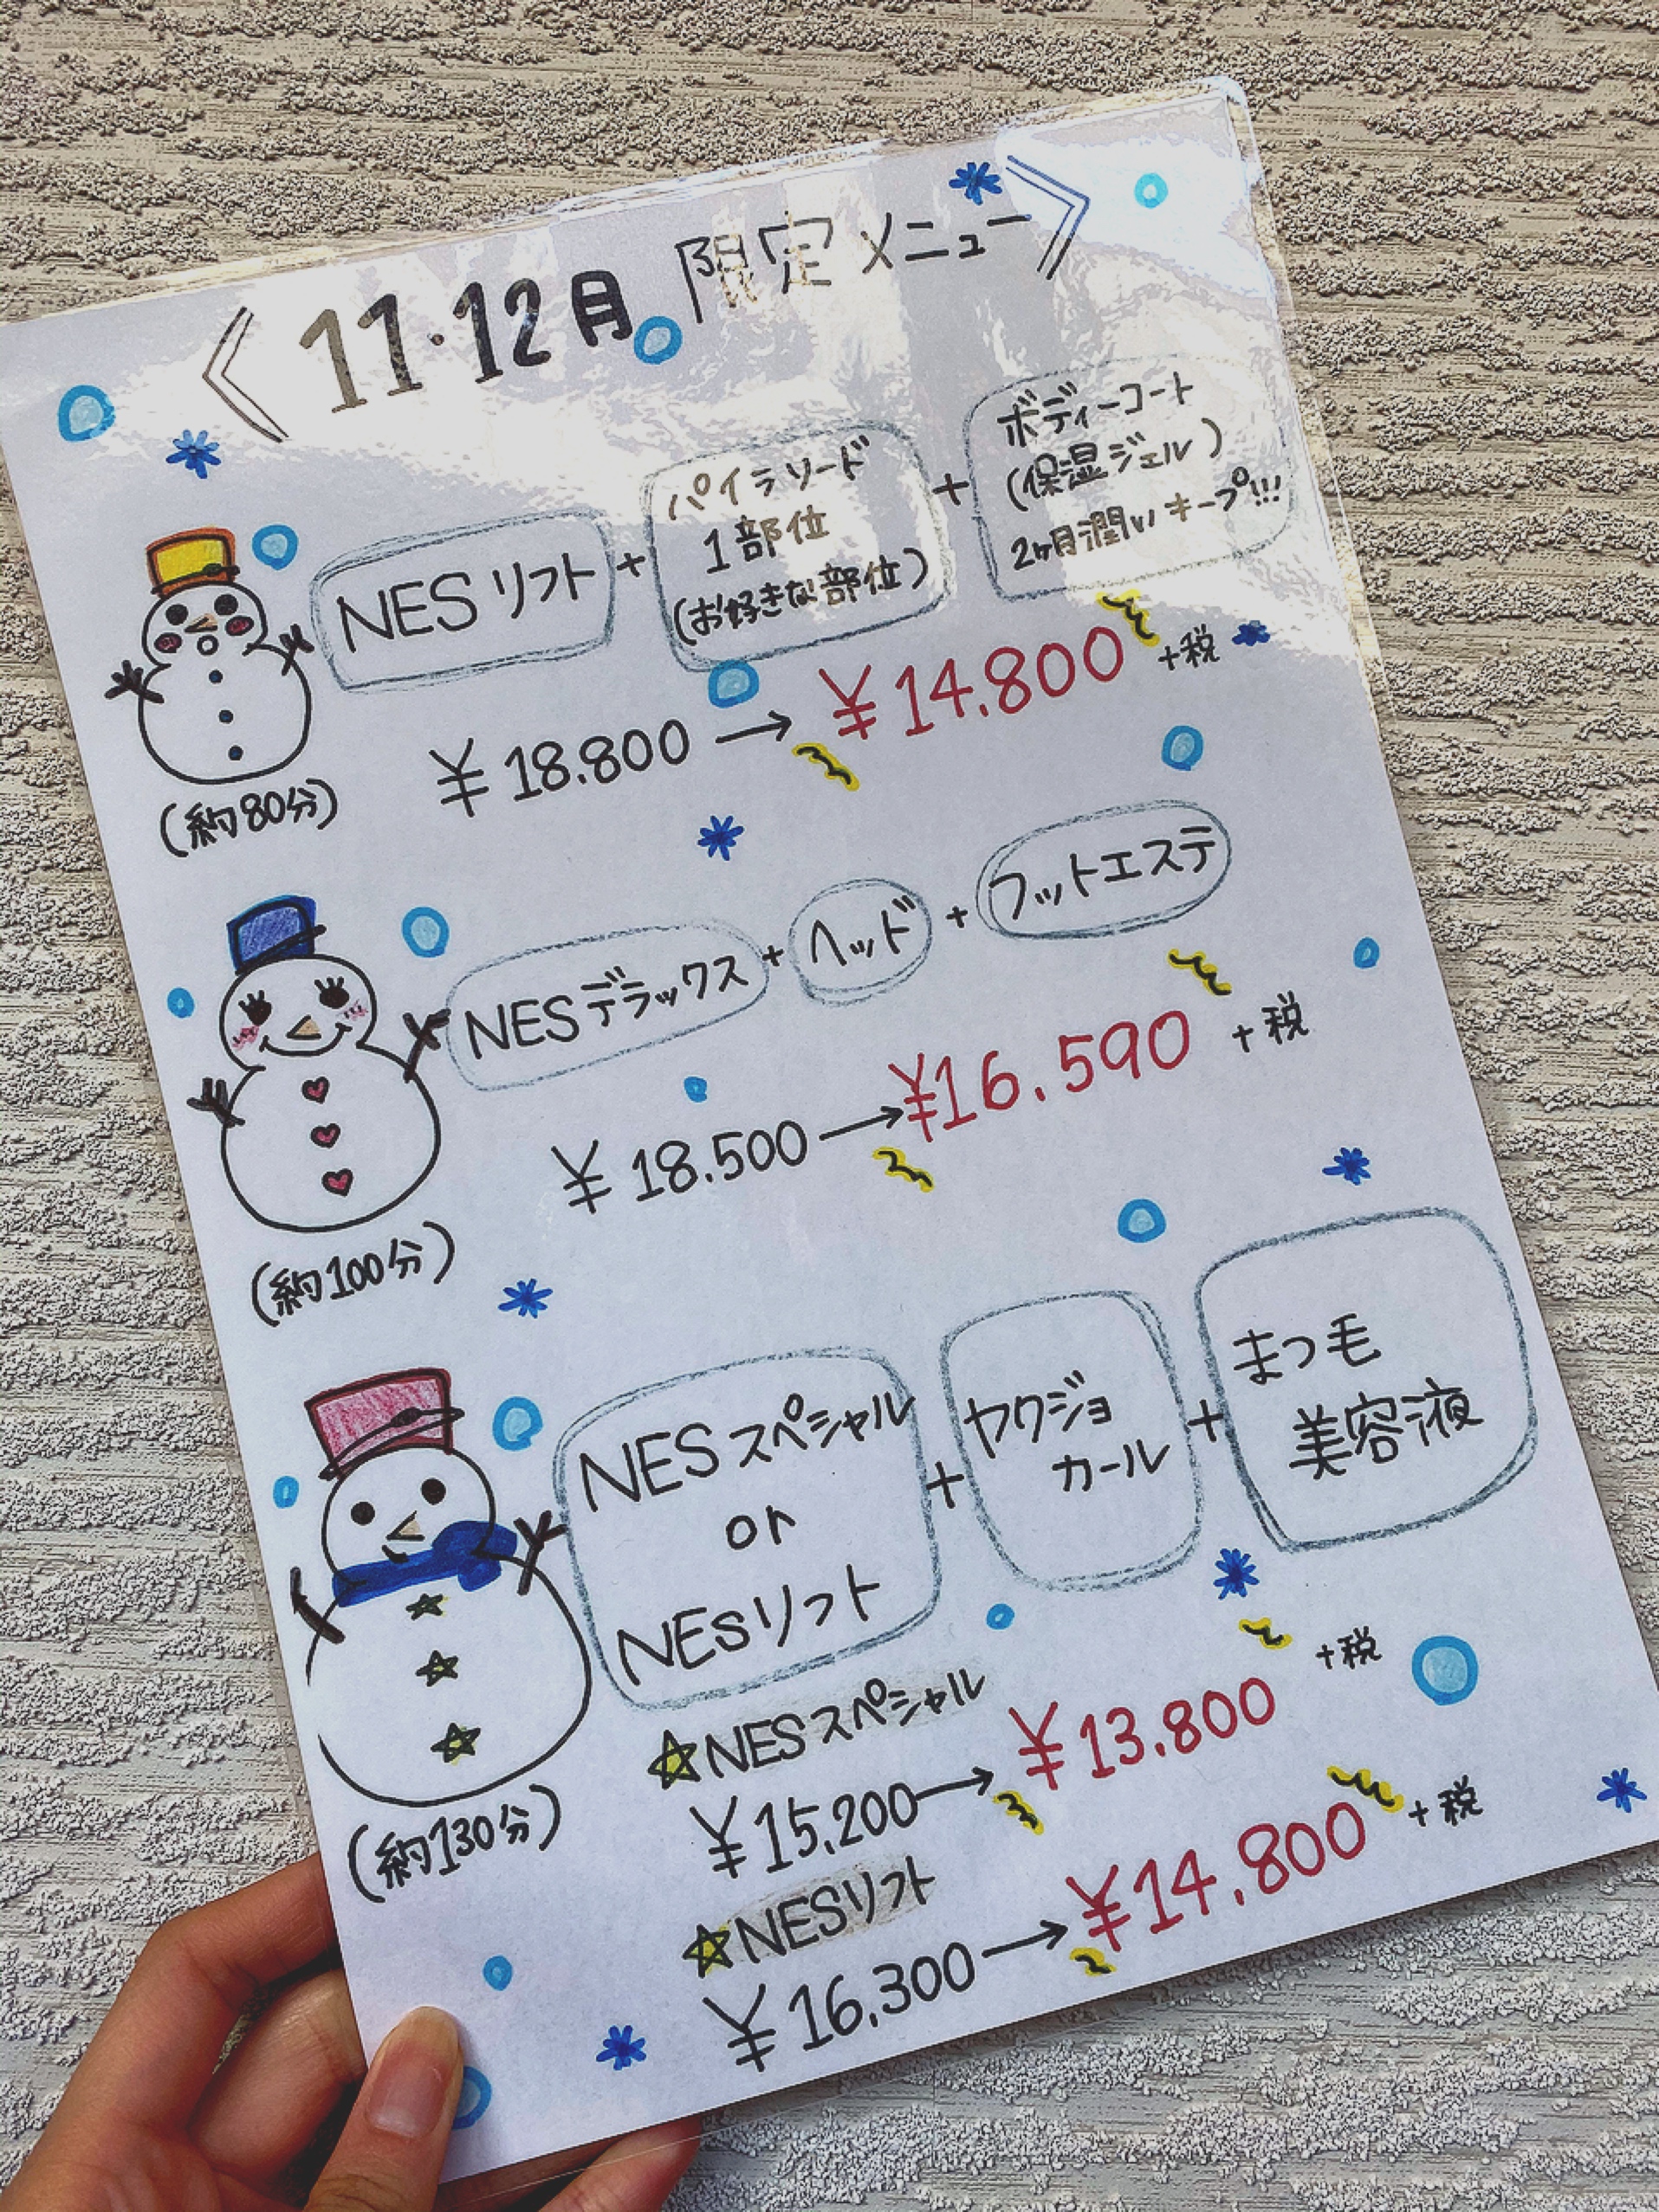 《11・12月 限定メニュー》
NESリフト + パイラソード 1部位 (お好きな部位) + ボディーコート (保湿ジェル) 2ヶ月潤いキープ!!!
¥18.800 → ¥14.800 +税
(約80分)
NESデラックス + ヘッド + フットエステ
¥18.500 → ¥16.590 +税
(約100分)
NESスペシャル or NESリフト + ヤクジョカール + まつ毛美容液
☆NESスペシャル
¥15,200 → ¥13.800 +税
(約130分)
☆NESリフト
¥16,300 → ¥14.800 +税